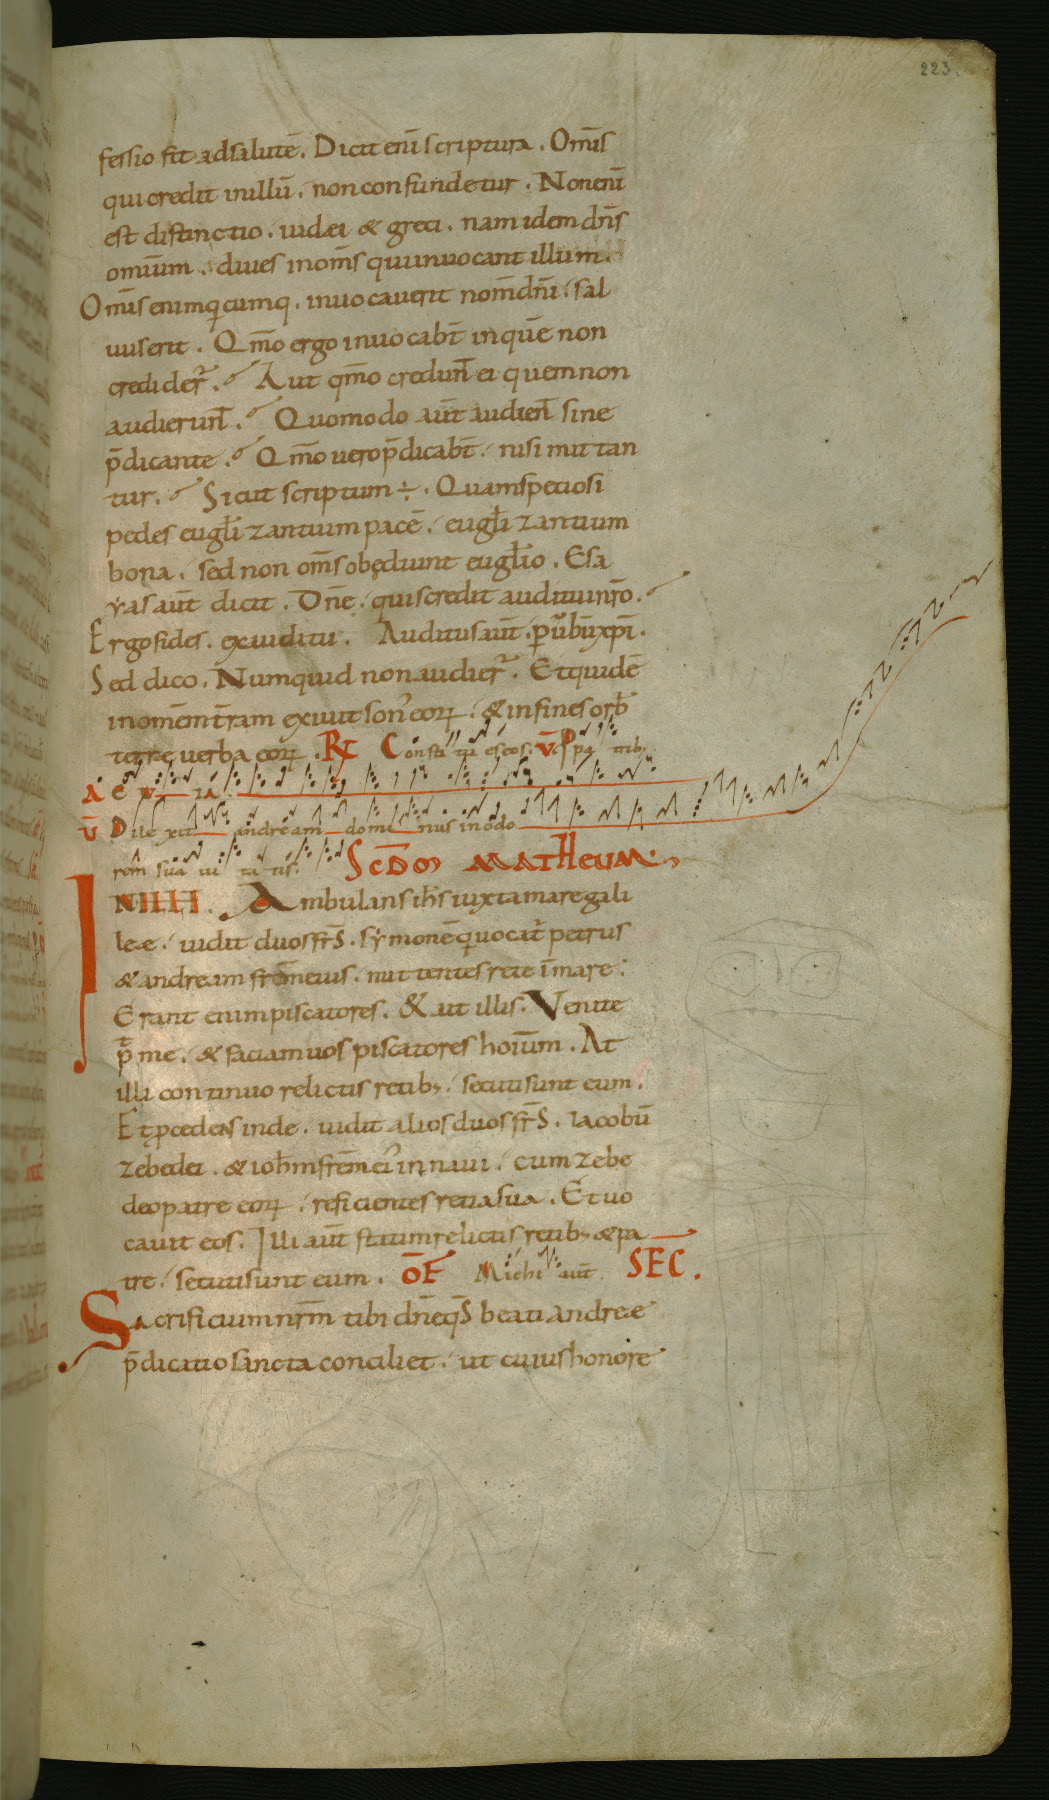 223.
fessio fit adsalutē. Dicit eni̅ scriptura. Om̅is
qui credit inillū. non confundetur. Non eni̅
est distinctio. iudei & greci. nam idem dn̅s
omium. diues inom̅s qui inuocant illum.
Om̅is enim qicumq. inuocauerit nom̅ dn̅i. sal
uus erit. Qm̅o ergo inuocabt̅ inquē non
credider̅. Aut qm̅o credunt̅ ei quem non
audierunt̅. Quomodo aut̅ audient̅ sine
p̅dicante. Qm̅o uero p̅dicabt̅. nisi mittan
tur. Sicut scriptum ÷. Quam speciosi
pedes eugl̅izantium pacē. eugl̅izantium
bona. sed non om̅s obędiunt eugl̅io. Esa
yas aut̅ dicit. Dn̅e. quis credit auditui nr̅o.
Ergo fides. ex auditu. Auditus aut̅. p uƀu̅ xp̅i.
Sed dico. Numquid non audier̅. Et quidē
inomēm t̅ram exiuit son' eoꝝ. & in fines orƀ
terre uerba eoꝝ. R̅ Constitues eos. V̅. P pa trib;
A E V IA
V̅ Dilexit andream dominus inodo
rem̅ suauitatis. Scd̅m MATHEUM.
INILLT. Ambulans ih̅s iuxta mare gali
leæ. uidit duos fr̅s. symonē qi uocat̅ petrus
& andream frēm eius. mittentes rete i̅ mare.
Erant enim piscatores. & ait illis. Venite
p̅t me. & faciam uos piscatores hoiu̅m. At
illi continuo relictis retib;. secuti sunt eum.
Et pcedens inde. uidit alios duos fr̅s. iacobū
zebedei. & ioh̅m frēm ei' in naui. cum zebe
deo patre eoꝝ. reficientes retia sua. Et uo
cauit eos. Illi aut̅ statim relictis retib; & pa
tre. secuti sunt eum. O̅F Michi aut̅. SEC.
Sacrificium nr̅m tibi dn̅e qs̅ beati andreæ
p̅dicatio sancta conciliet. ut cuius honore